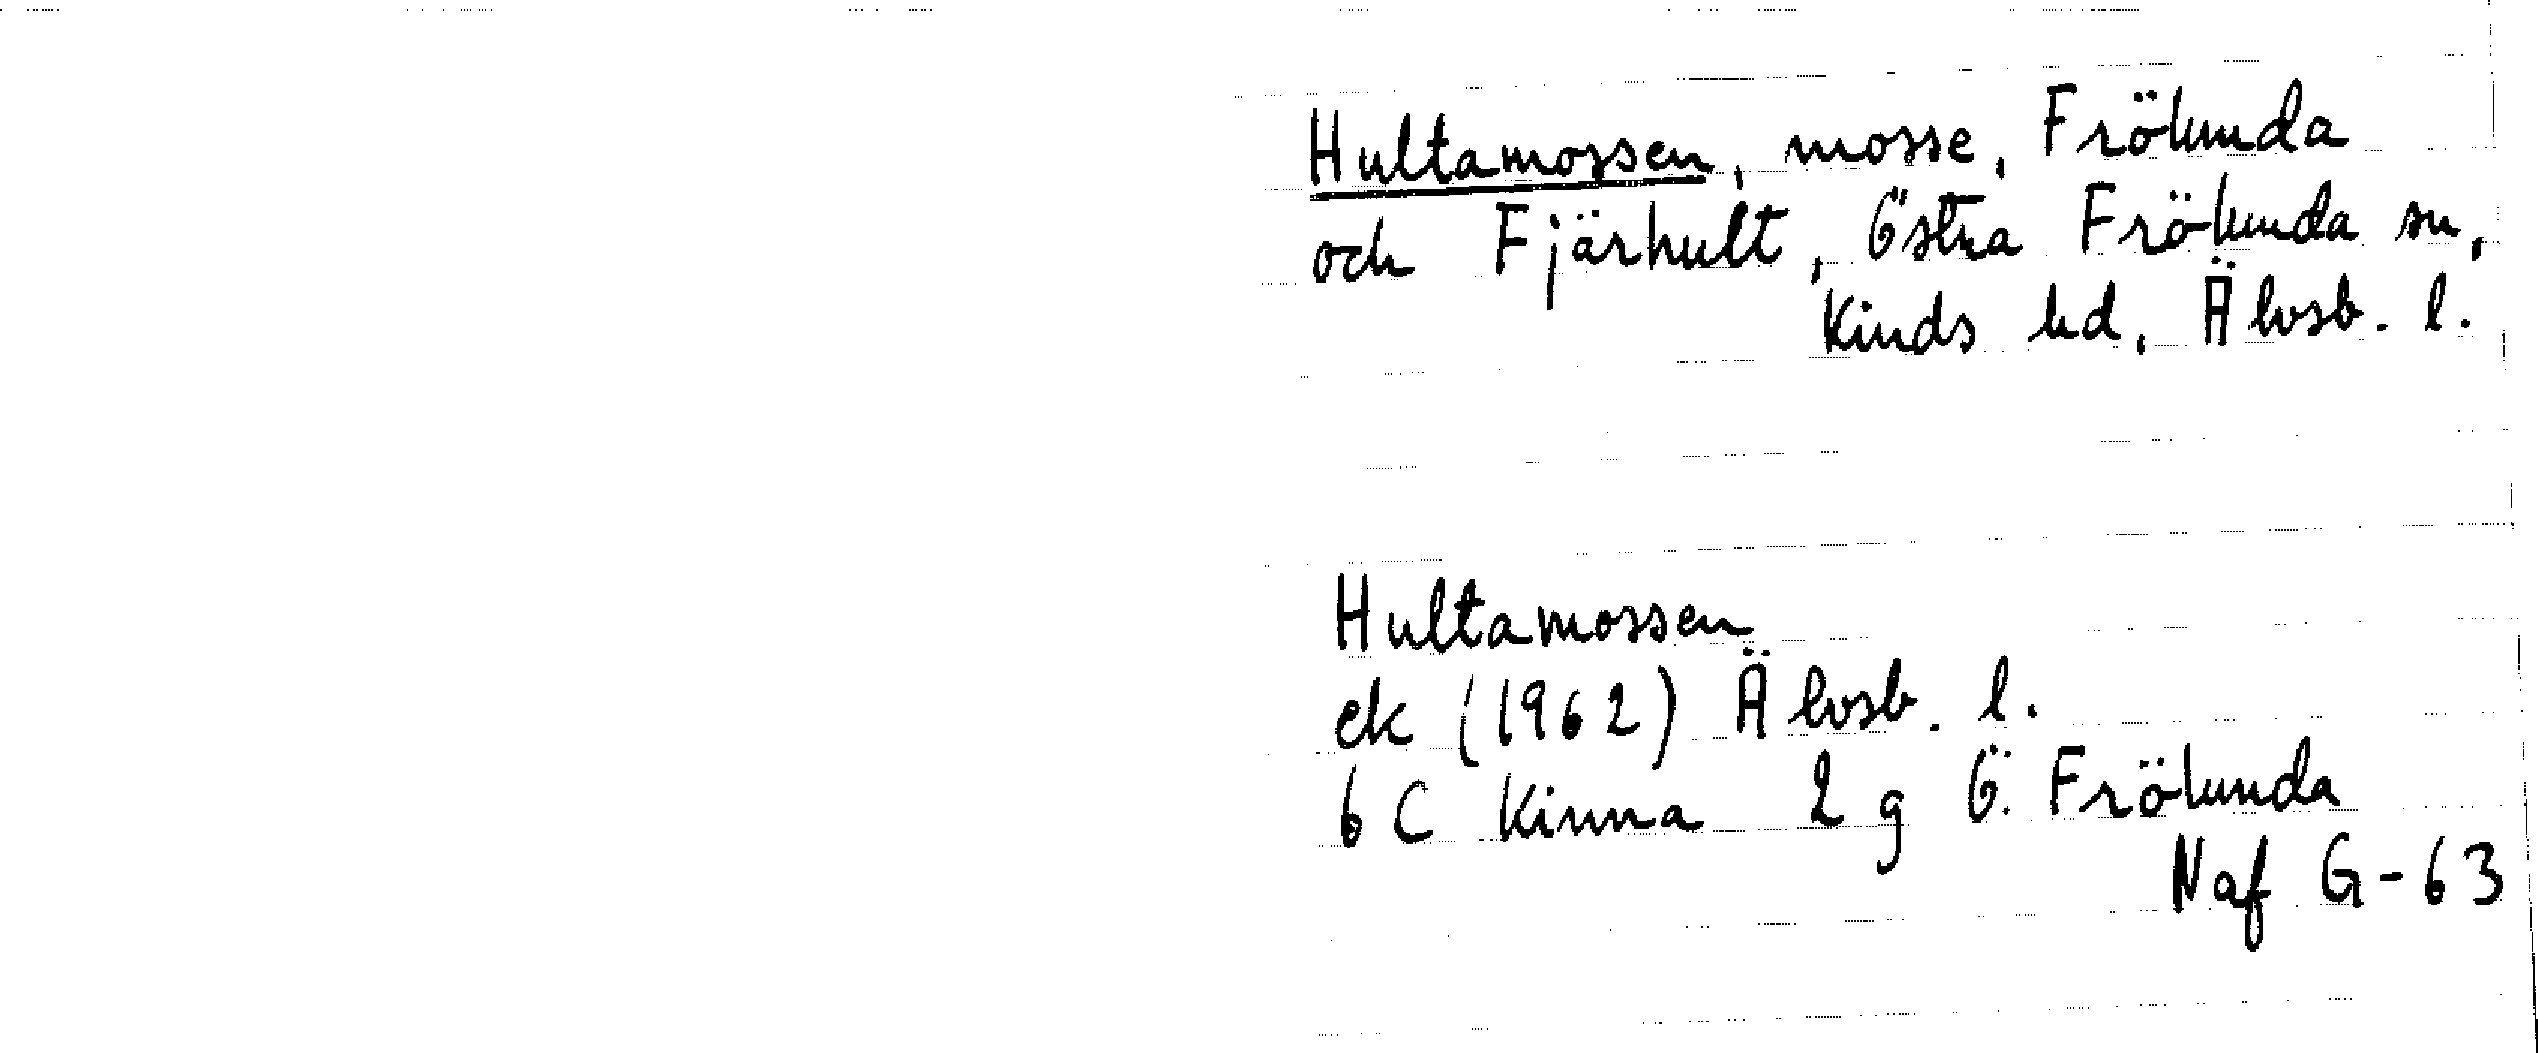 Hultamossen, mosse, Frölunda
och Fjärhult, Östra Frölunda sn,
Kinds hd, Älvsb. l.
Hultamossen
ek (1962) Älvsb. l.
6 C Kinna 2 g Ö. Frölunda
Naf G-63